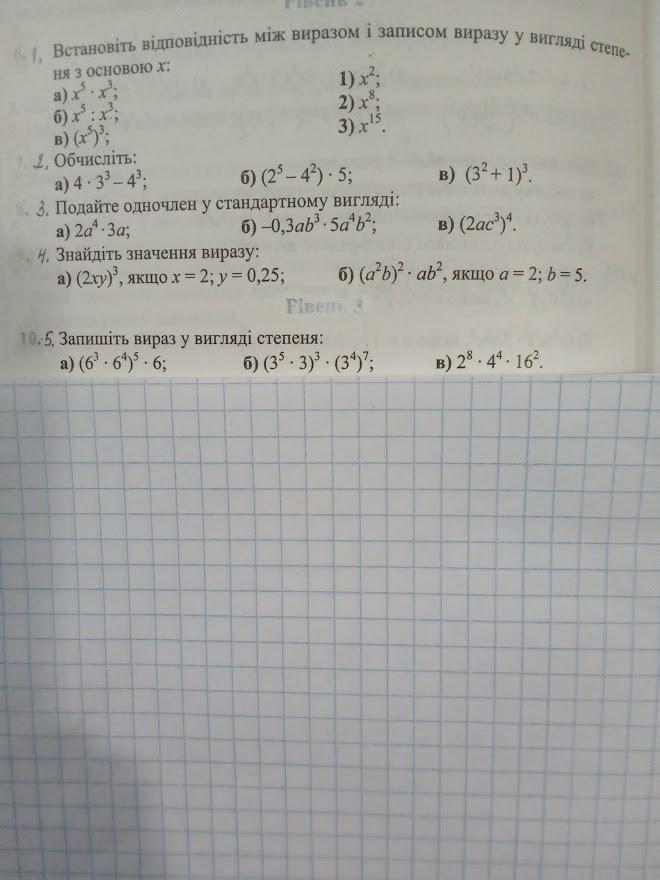 Рівень 2
6. 1, Встановіть відповідність між виразом і записом виразу у вигляді степе-
ня з основою x:
а) x⁵ · x³; 1) x²;
б) x⁵ : x³; 2) x⁸;
в) (x⁵)³; 3) x¹⁵.
7. 2, Обчисліть:
а) 4 · 3³ – 4³; б) (2⁵ – 4²) · 5; в) (3² + 1)³.
8. 3. Подайте одночлен у стандартному вигляді:
а) 2a⁴ · 3a; б) –0,3ab³ · 5a⁴b²; в) (2ac³)⁴.
9. 4. Знайдіть значення виразу:
а) (2xy)³, якщо x = 2; y = 0,25; б) (a²b)² · ab², якщо a = 2; b = 5.
Рівень 3
10. 5, Запишіть вираз у вигляді степеня:
а) (6³ · 6⁴)⁵ · 6; б) (3⁵ · 3)³ · (3⁴)⁷; в) 2⁸ · 4⁴ · 16².